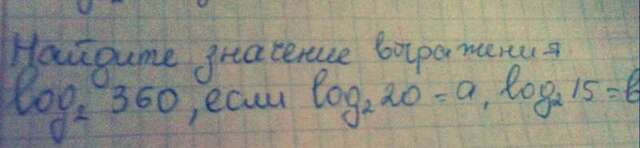 Найдите значение выражения
log₂ 360, если log₂ 20 = a, log₂ 15 = b